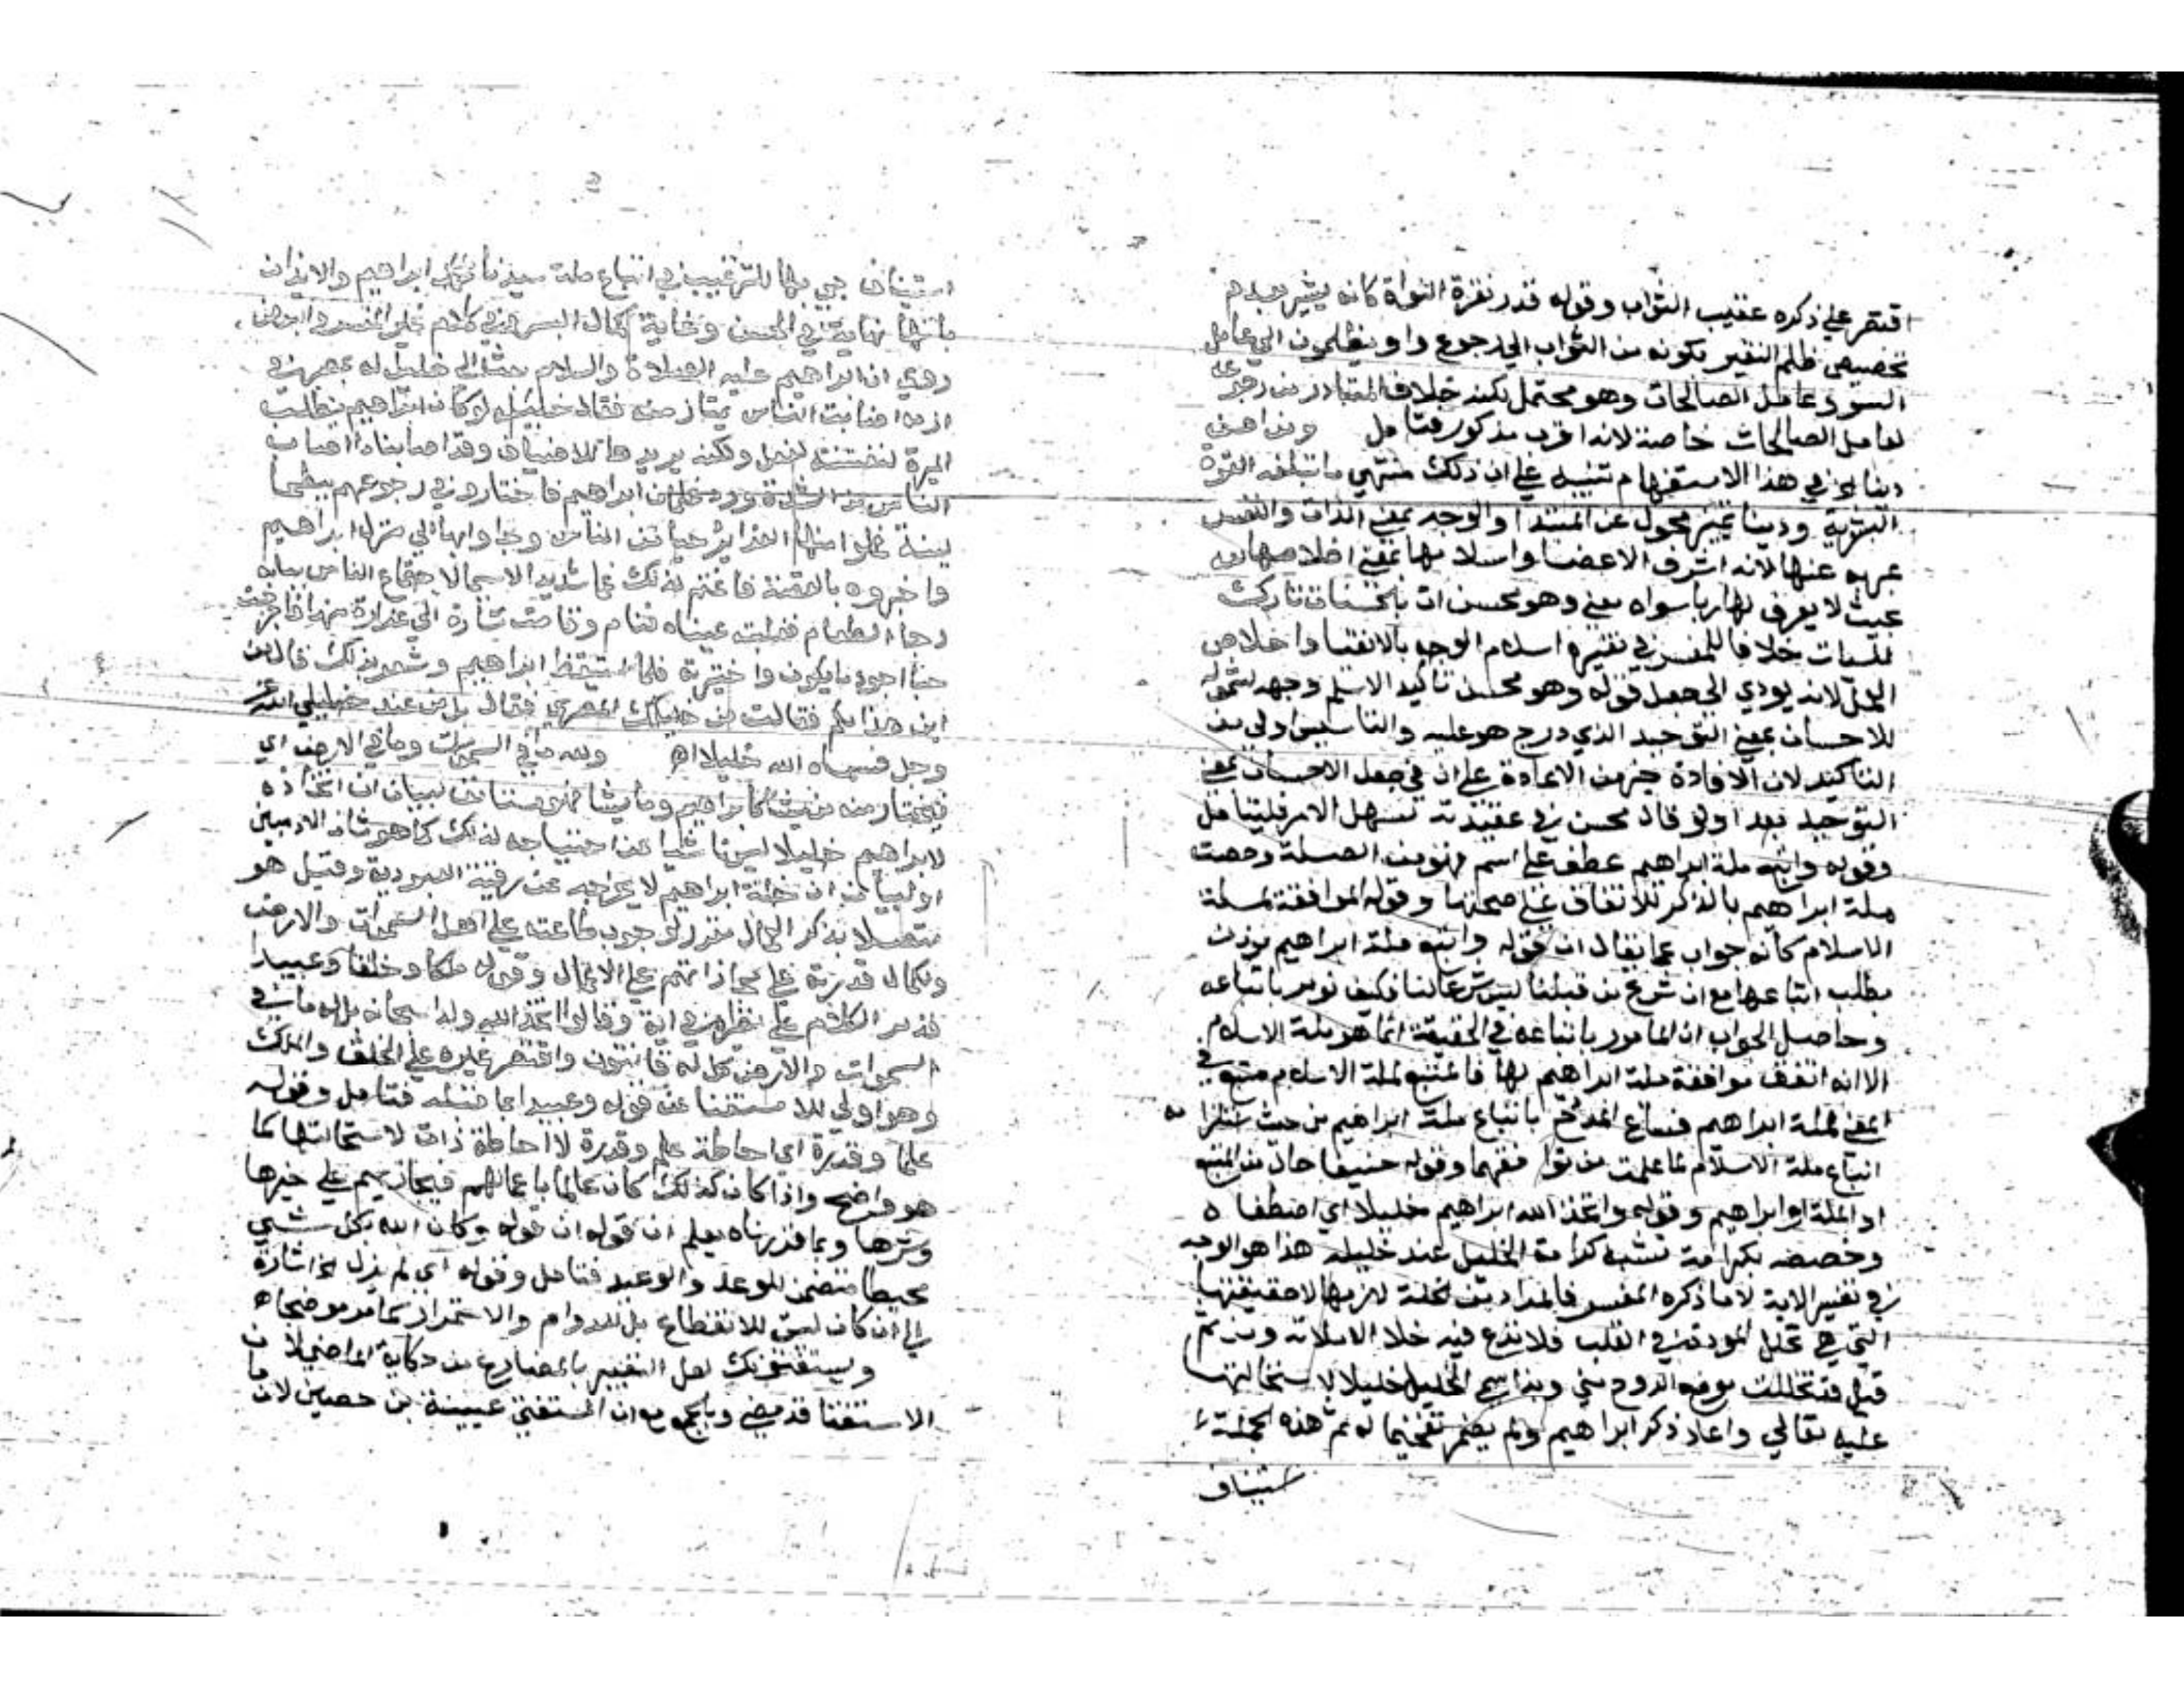 اقتصر على ذكره عقيب الثواب وقوله قدر نقرة النواة كانه يشير بعدم
تخصيص ظلم النقير بكونه من الثواب الى رجوع واو يظلمون الى عامل
السوء وعامل الصالحات وهو محتمل لكنه خلاف المتبادر من رجوعه
لعامل الصالحات خاصة لانه اقرب مذكور فتامل ومن احسن
دينا الخ في هذا الاستفهام تنبيه على ان ذلك منتهي ما تبلغه القوة
البشرية ودينا تمييز محول عن المبتدا والوجه بمعني الذات والنفس
عبر به عنها لانه اشرف الاعضا واسلامها بمعني اخلاصها له
بحيث لا يعرف لها ربا سواه معني وهو محسن ات بالحسنات تارك
للسيات خلافا للمفسر في تفسيره اسلام الوجه بالانقياد واخلاص
العمل لانه يودي الى جعل قوله وهو محسن تاكيد الاسلم وجهه لشموله
للاحسان بمعني التوحيد الذي درج هو عليه والتاسيس اولى من
التاكيد لان الافادة خير من الاعادة على ان في جعل الاحسان بمعني
التوحيد بعدا ولو قال محسن في عقيدته لسهل الامر فليتامل
وقوله واتبع ملة ابراهيم عطف على اسلم فهو من الصلة وخصت
ملة ابراهيم بالذكر للاتفاق على صحتها وقوله الموافقة لملة
الاسلام كانه جواب عما يقال ان قوله واتبع ملة ابراهيم يوذن
بطلب اتباعها مع ان شرع من قبلنا ليس شرعا لنا فكيف نومر باتباعه
وحاصل الجواب ان المامور باتباعه في الحقيقة انما هو ملة الاسلام
الا انه اتفق موافقة ملة ابراهيم لها فالمتبع لملة الاسلام متبع في
المعني لملة ابراهيم فساغ المدح باتباع ملة ابراهيم من حيث استلزامه
اتباع ملة الاسلام لما علمت من توافقهما وقوله حنيفا حال من المتبع
او الملة او ابراهيم وقوله واتخذ الله ابراهيم خليلا اي اصطفاه
وخصصه بكرامة تشبه كرامة الخليل عند خليله هذا هو الوجه
في تفسير الاية لا ما ذكره المفسر فالمراد من الخلة لازمها لا حقيقتها
التي هي تخلل المودة في القلب فلا تدع فيه خلا الا ملاته ومن ثم
قيل قد تخللت موضع الروح مني وبذا سمي الخليل خليلا لاستحالتها
عليه تعالي واعاد ذكر ابراهيم ولم يضمر تفخيما له ثم هذه الجملة
استيناف
استيناف جي بها للترغيب في اتباع ملة سيدنا ابراهيم والايذان
بانها نهاية في الحسن وغاية كمال البشر
روي ان ابراهيم عليه الصلاة والسلام بعث الى خليل له بمصر في
ازمة اصابت الناس يمتار منه فقال خليله لو كان ابراهيم يطلب
الميرة لنفسه لفعل ولكنه يريدها للاضياف وقد اصابنا ما اصاب
الناس من الشدة فاجتازوا في رجوعهم ببطحا
لينة فملوا منها الغراير حيا من الناس وجاوا بها الى منزل ابراهيم
واخبروه بالقصة فاغتم لذلك غما شديدا لا سيما لاجتماع الناس ببابه
رجا الطعام فغلبته عيناه فنام وقامت سارة الى غرارة منها فاخرجت
اجود ما يكون واختبزت فلما استيقظ ابراهيم قال من
اين هذا لكم فقالت من خليلك المصري فقال بل من عند خليلي الله عز
وجل فسماه الله خليلا اه ولله ما في السموات وما في الارض اي
فيختار منه من يشا كابراهيم وما يشا فهو مستانف لبيان ان اتخاذه
لابراهيم خليلا ليس ناشيا عن احتياجه لذلك كما هو شان الادميين
او لبيان ان خلة ابراهيم لا تخرجه عن رقية العبودية وقيل هو
متصل بذكر العمال مقرر لوجوب طاعته على اهل السموات والارض
وكمال قدرته على مجازاتهم على الاعمال وقوله ملكا وخلقا وعبيدا
قد مر الكلام على نظيره في اية وقالوا اتخذ الله ولدا سبحانه بل له ما في
السموات والارض كل له قانتون واقتصر غيره على الخلق والملك
وهو اولى للاستغنا عن قوله وعبيدا بما قبله فتامل وقوله
علما وقدرة اي احاطة علم وقدرة لا احاطة ذات لاستحالتها كما
هو واضح واذا كان كذلك كان عالما باعمالهم فيجازيهم على خيرها
وشرها وبما قررناه يعلم ان قوله وكان الله بكل شي
محيطا متضمن للوعد والوعيد فتامل وقوله اي لم يزل الخ اشارة
الى ان كان ليس للانقطاع بل للدوام والاستمرار كما مر موضحا اه
ويستفتونك لعل التعبير بالمضارع من حكاية الماضي لان
الاستفتا قد مضي وبالجمع مع ان المستفتي عيينة بن حصين لان ما